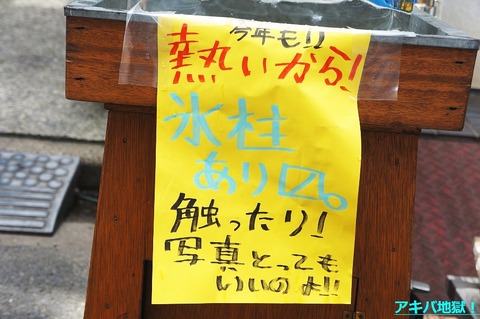 今年も!!
熱いから!
氷柱
あり〼。
触ったり!
写真とっても
いいのよ!!
アキバ地獄!